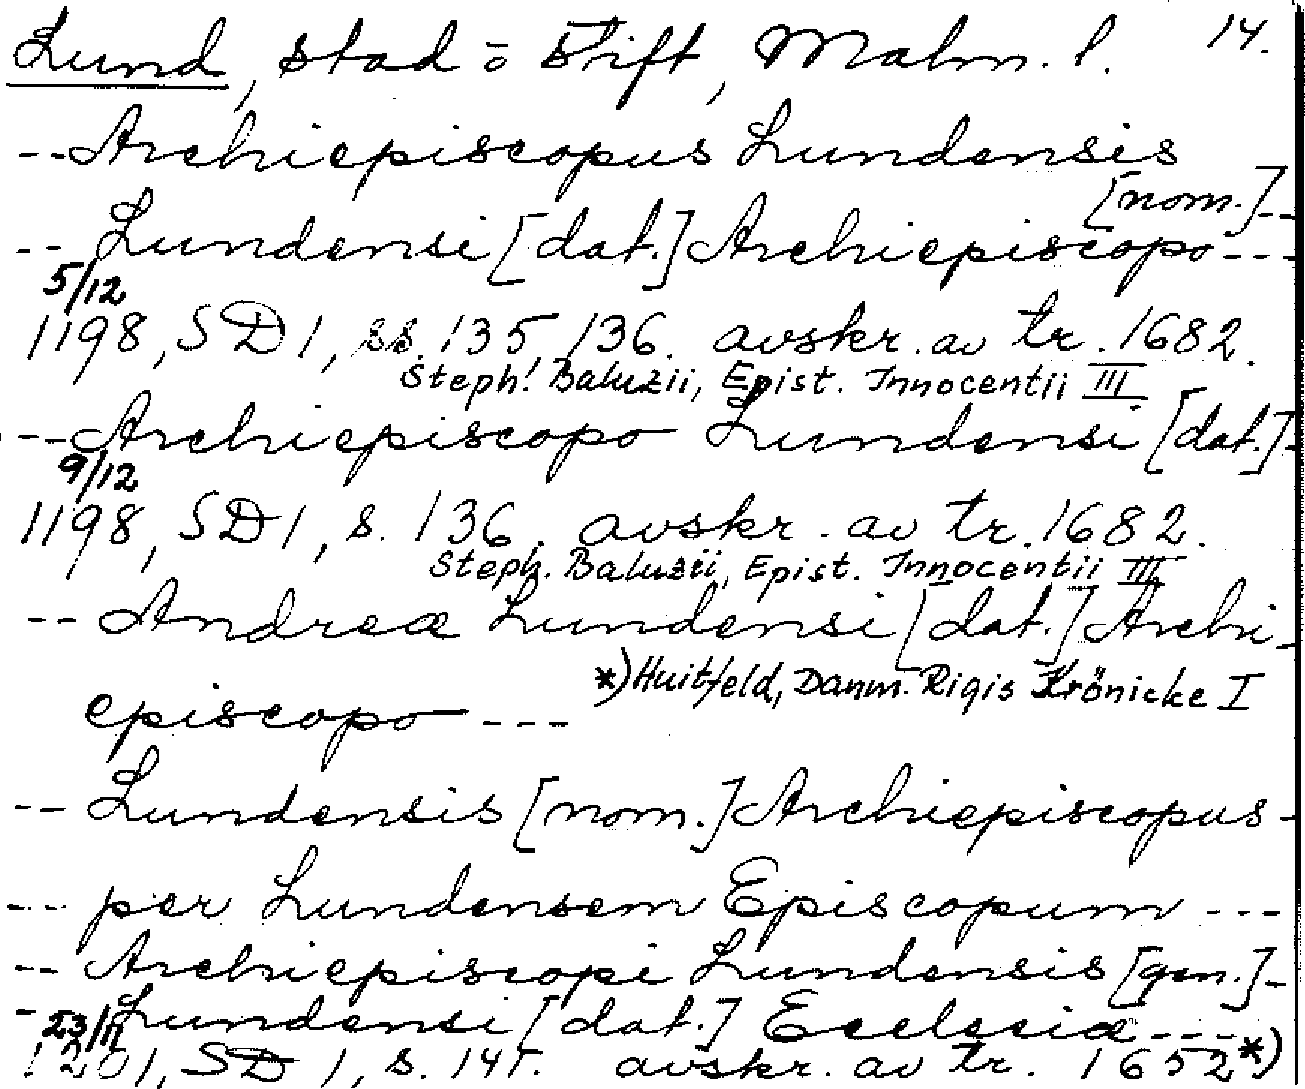 Lund, stad o Stift, Malm. l. 14.
-- Archiepiscopus Lundensis
[nom.]--
-- Lundensi [dat.] Archiepiscopo ---
5/12
1198, SD 1, ss. 135, 136. avskr. av tr. 1682.
Steph. Baluzii, Epist. Innocentii III
-- Archiepiscopo Lundensi [dat.]-
9/12
1198, SD 1, s. 136. avskr. av tr. 1682.
Steph. Baluzii, Epist. Innocentii III
-- Andreæ Lundensi [dat.] Archi-
*) Huitfeld, Danm. Rigis Krönicke I
episcopo ---
-- Lundensis [nom.] Archiepiscopus -
--- per Lundensem Episcopum ---
-- Archiepiscopi Lundensis [gen.]-
- Lundensi [dat.] Ecclesiæ ---
23/11
1201, SD 1, s. 145. avskr. av tr. 1652 *)